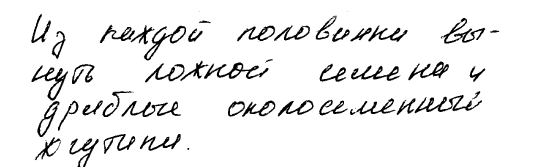 Из каждой половинки вы-
нуть ложкой семена и
дряблые околосеменный
жгутики.